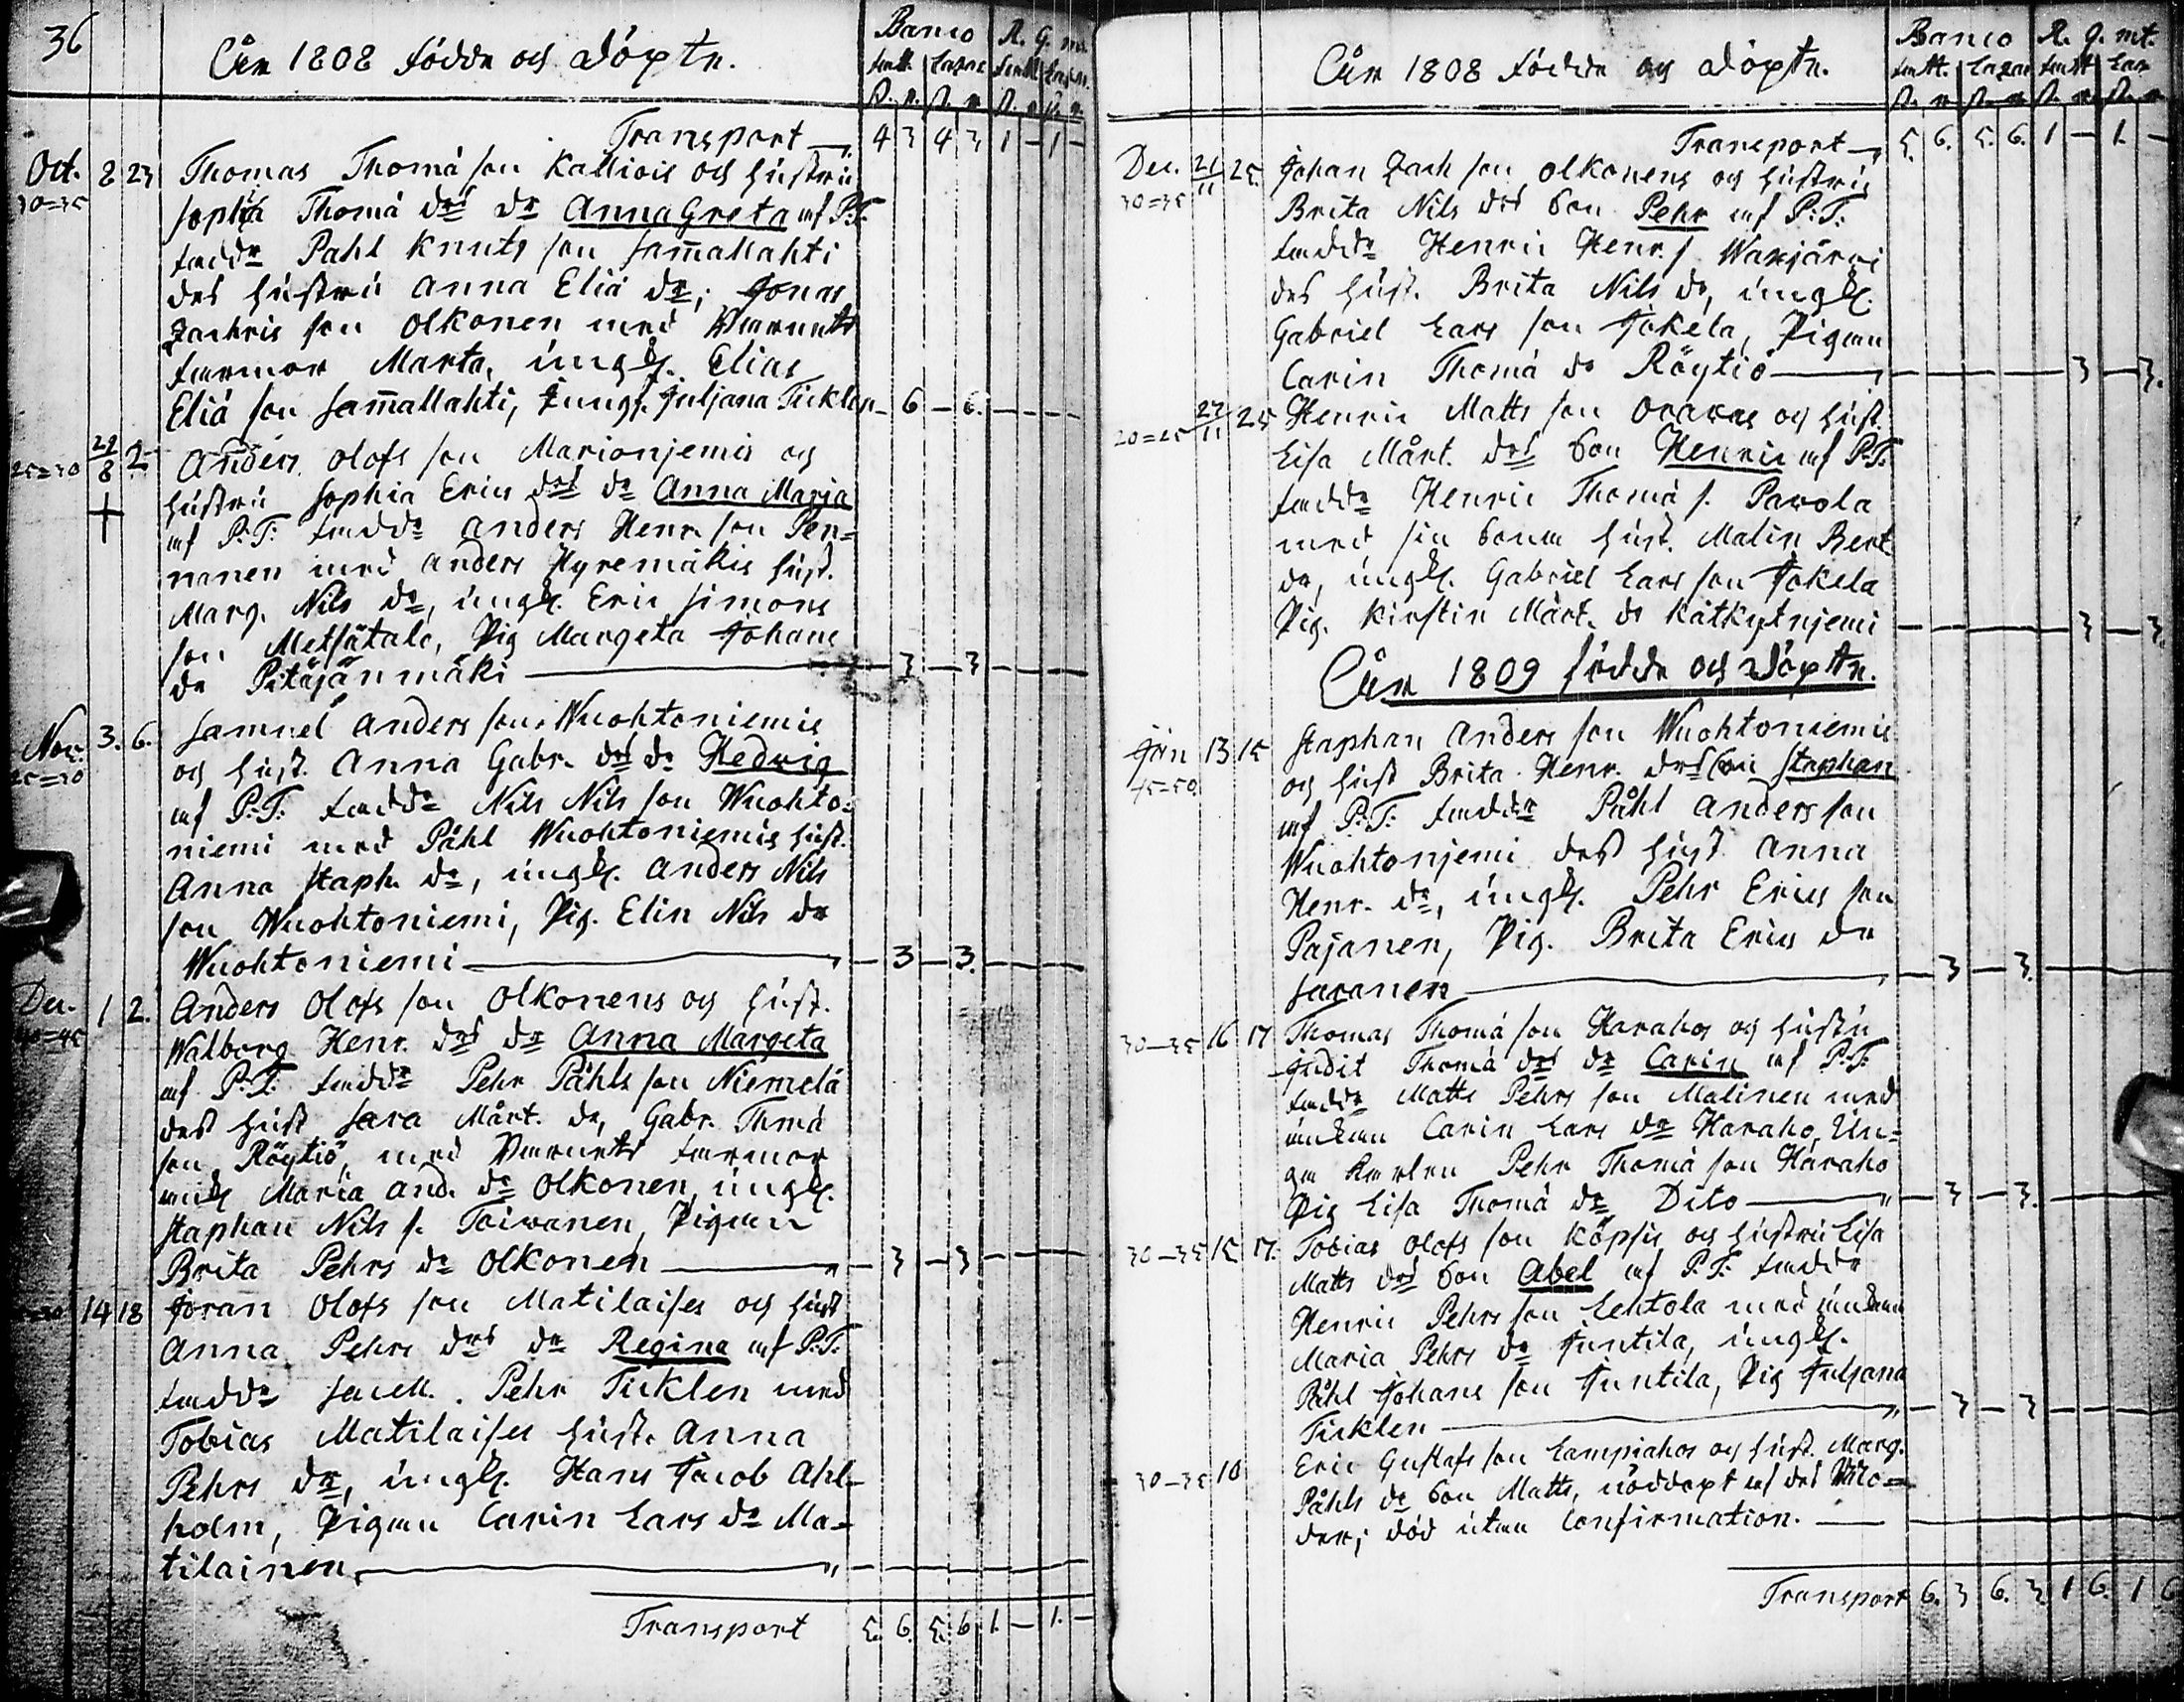 36
Åren 1808 födde och döpte.
Banco R. G. mt.
Transport 4 3 4 3 1 - 1 -
Oct. 8 23 Thomas Thomä son Kalliois och hustru
30=35 Sophia Thomä drs dr Anna Greta af P.T.
faddr Pahl Knuts son Sam̄allahti
des hustru Anna Eliä dr; Jonas
Zachris son Olkonen med Barnets
farmor Marta, ungk. Elias
Eliä son Sam̄allahti, Jungf. Juljana Ticklen - 6 - 6.
25=30 29/8 2 Anders Olofs son Marionjemis och
hustru Sophia Erics drs dr Anna Marja
af P.T. faddr Anders Henr. son Pen=
nanen med Anders Hyremäkis hust.
Marg. Nils dr, ungk. Eric Simons
son Metsätalo, Pig Margeta Johans
dr Pitäjänmäki - 3 - 3
Nov. 3. 6. Samuel Anders son Wuohtoniemis
25=30 och hust. Anna Gabr. drs dr Hedwig
af P.T. faddr Nils Nils son Wuohto=
niemi med Påhl Wuohtoniemis hust.
Anna Staph. dr, ungk. Anders Nils
son Wuohtoniemi, Pig. Elin Nils dr
Wuohtoniemi - 3 - 3.
Dec. 1 2. Anders Olofs son Olkonens och hust.
40=45 Walborg Henr. drs dr Anna Margeta
af P.T. faddr Pehr Påhls son Niemelä
des hust Sara Mårt. dr, Gabr. Thmä
son Röytiö, med Barnets farmor
enk Maria And. dr Olkonen, ungk.
Staphan Nils s. Toiwanen, Pigan
Brita Pehrs dr Olkonen - 3 - 3
14 18 Göran Olofs son Matilaises och hust
Anna Pehrs drs dr Regina af P.T.
faddr Pehr Ticklen med
Tobias Matilaises hust. Anna
Pehrs dr, ungk. Hans Jacob Ahl-
holm, Pigan Carin Lars dr Ma-
tilainen
Transport 5. 6. 5. 6. 1. - 1. -
Åren 1808 födde och döpte.
Banco R. G. mt.
Transport 5. 6. 5. 6. 1 - 1. -
Dec. 21/11 25. Johan Zach son Olkonens och hustru
30=35 Brita Nils drs Son Pehr af P.T.
faddr Henric Henr. s. Warjärvi
des hust. Brita Nils dr, ungk.
Gabriel Lars son Jokela, Pigan
Carin Thomä dr Röytiö 3 - 3.
20=25 27/11 25 Henric Matts son Orawas och hust.
Lisa Mårt. drs Son Henric af P.T.
faddr Henric Thomä s. Parola
med sin Sons hust. Malin Bert
dr, ungk. Gabriel Lars son Jokela
Pig. Kirstin Mårt. dr Kätkytnjemi 3 - 3.
Åren 1809 födde och döpte.
Jan 13 15 Staphan Anders son Wuohtoniemis
45=50 och hust Brita Henr. drs Son Staphan
af P.T. faddr Påhl Anders son
Wuohtonjemi des hust Anna
Henr. dr, ungk. Pehr Erics son
Pajanen, Pig. Brita Erics dr
Saranen - 3 - 3.
30-35 16 17 Thomas Thomä son Harahos och hustru
Judit Thomä drs dr Carin af P.T.
faddr Matts Pehrs son Malinen med
änkan Carin Lars dr Haraho, Un=
ga Karlen Pehr Thomä son Haraho
Pig Lisa Thomä dr Dito - 3 - 3.
30-35 15 17. Tobias Olofs son Köpsis och hustru Lisa
Matts drs Son Abel af P.T. faddr
Henric Pehrs son Lehtola med änkan
Maria Pehrs dr Juntila, ungk.
Påhl Johans son Juntila, Pig Juljana
Ticklen - 3 - 3
30-35 10 Eric Gustafs son Lampiahos och hust. Marg.
Påhls dr Son Matts, nöddöpt af des Mo=
der; död utan Confirmation.
Transport 6. 3 6. 3 1 6. 1 6